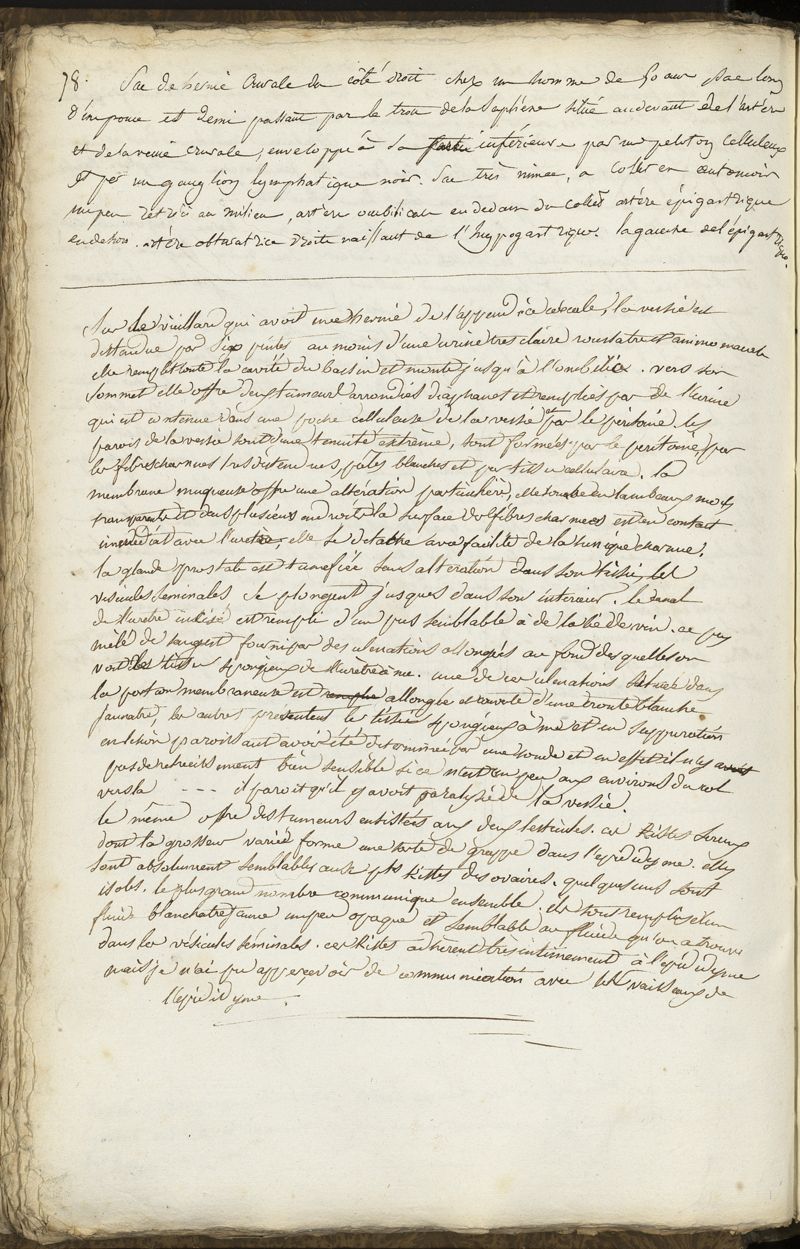 78. Sac de hernie Crurale du côté droit chez un homme de 50 ans. Sac long
d'un pouce et demi passant par le trou de la Saphène situé au devant de l'artère
et de la veine Crurale, enveloppé à sa partie inférieure par un peloton Celluleux
et par un ganglion lymphatique noir. Sac très mince, a collet en entonnoir
un peu rétréci au milieu, artère ombilicale en dedans du Collet artère épigastrique
en dehors. artère obturatrice droite naissant de l'hypogastrique. la gauche de l'épigastrique.
Sur le vieillard qui avoit une hernie de l'appendice cœcale, la vessie est
distendue par Six pintes au moins d'une urine tres claire roussatre et ammoniacale
elle remplit toute la cavité du bassin et monte jusqu'à l'ombilic. vers son
Sommet elle offre deux tumeurs arrondies diaphanes et remplies par de l'urine
qui est contenue dans une poche celluleuse de la vessie et par le péritoine. les
parois de la vessie sont d'une tenuité extrême, sont formées par le peritoine, par
les fibres charnues très distendues pâles blanches et par tissu cellulaire. la
membrane muqueuse offre une altération particulière, elle tombe en lambeaux mous
transparents et dans plusieurs endroits la surface des fibres charnues est en contact
immédiat avec l'urine, elle se détache avec facilité de la tunique charnue.
la glande prostate est tuméfiée sans altération dans son tissu, les
vésicules Seminales se plongent jusques dans son interieur. le canal
de l'uretre incisé est rempli d'un pus semblable à de la lie de vin. ce pus
mêlé de sang est fourni par des ulcerations allongées au fond des quelles on
voit le tissu Spongieux de l'urètre à nu. une de ces ulcerations située dans
la portion membraneuse est remplie allongée et couverte d'une croute blanche
jaunatre, les autres présentent le tissu spongieux à nu et en suppuration
en lésion paroissant avoir été déterminée par une sonde et en effet il n'y avoit
pas de retrecissement bien sensible si ce n'est un peu aux environs du col
vers la - - - il paroit qu'il y avoit paralysie de la vessie.
le même offre des tumeurs enkistées aux deux testicules. ces kistes sereux
dont la grosseur varie forme une sorte de grappe dans l'epididyme. elles
sont absolument semblables aux pts kistes des ovaires. quelques uns sont
isolés. le plus grand nombre communique ensemble. ils sont remplis d'un
fluide blanchatre jaune un peu opaque et semblable au fluide qu'on a trouvé
dans les vésicules séminales. ces kistes adhèrent très intimement à l'epididyme
mais je n'ai pu appercevoir de communication avec les vaisseaux de
l'epididyme.